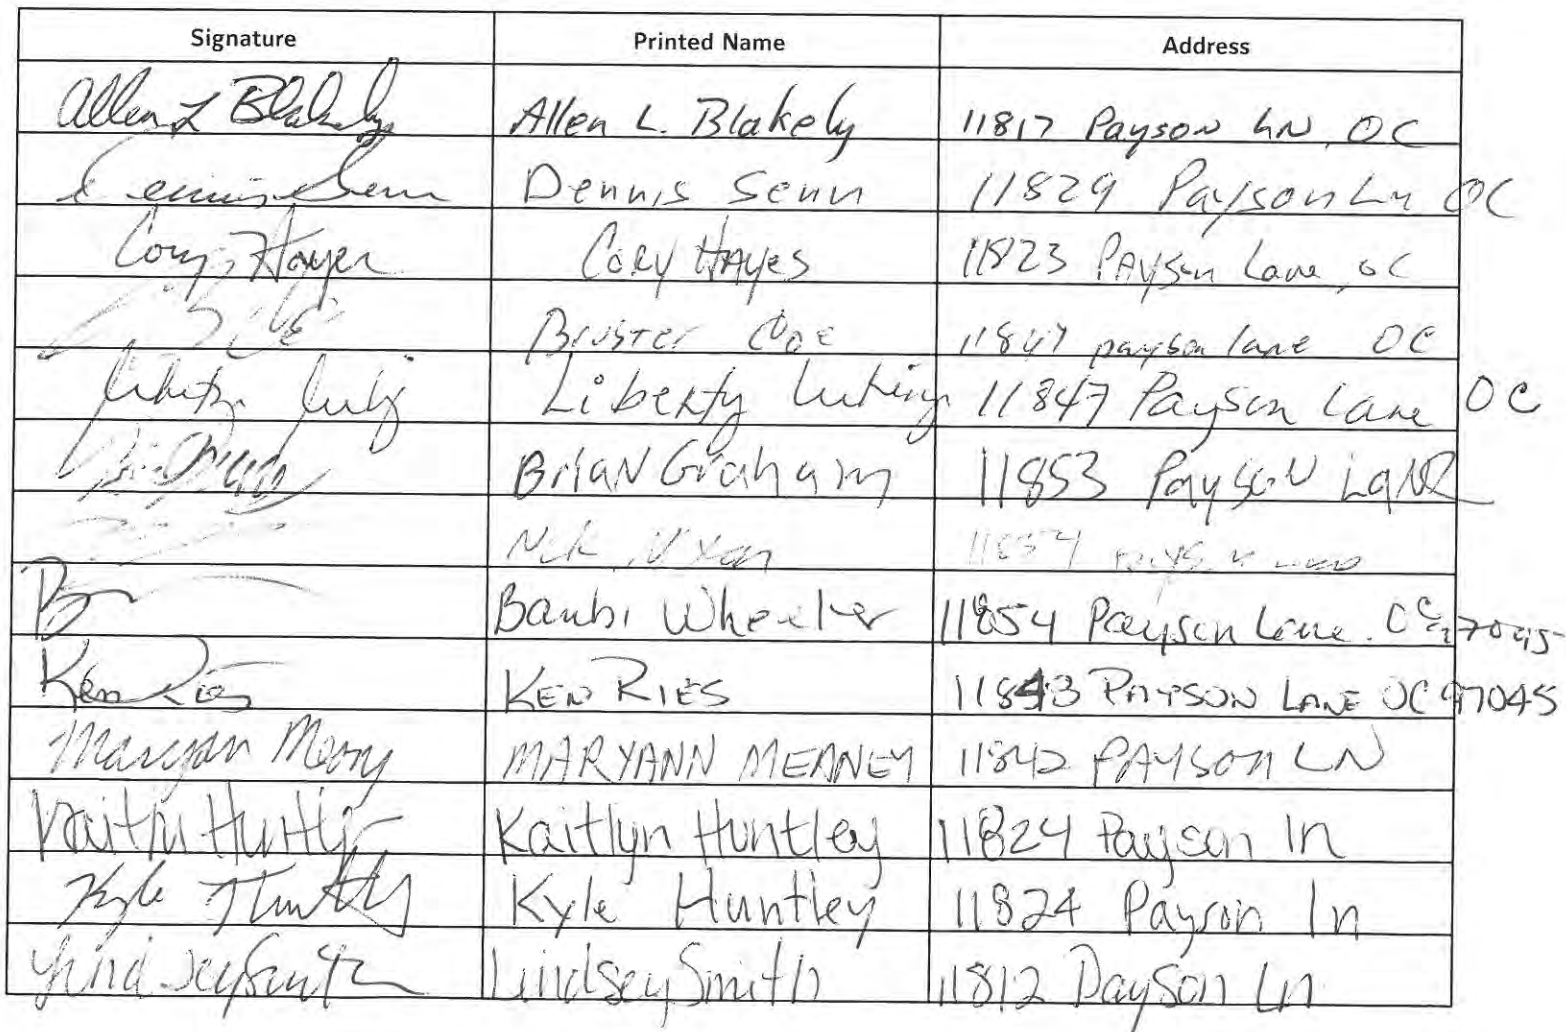 Signature Printed Name Address
Allen L Blakely Allen L. Blakely 11817 Payson LN, OC
Dennis Senn Dennis Senn 11829 Payson Ln OC
Cory Hayes Cory HAyes 11823 PAYSon Lane, OC
Bruster Coe 11847 payson lane OC
Liberty 11847 Payson Lane OC
BriaN Graham 11853 PaysoN LaNe
Nick Nixon
B Bambi Wheeler 11854 Payson Lane. OC 97045
Ken Ries KEN RIES 11843 PAYSON LANE OC 97045
Maryann Meaney MARYANN MEANEY 11842 PAYSON LN
Kaitlyn Huntley Kaitlyn Huntley 11824 Payson ln
Kyle Huntley Kyle Huntley 11824 Payson ln
Lindsey Smith Lindsey Smith 11812 Payson Ln